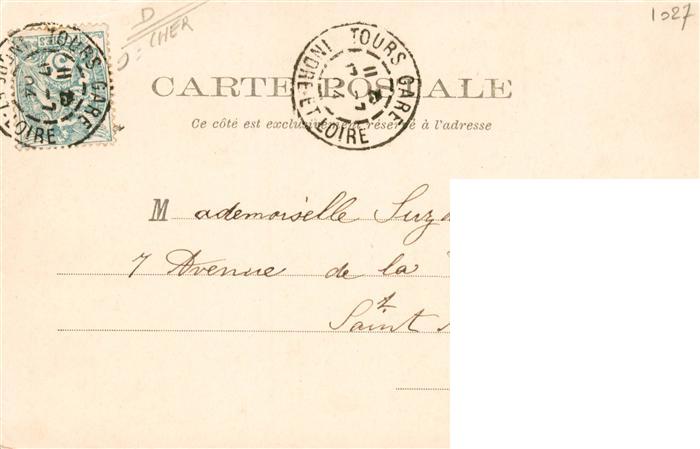 1027
D
CHER
TOURS GARE
INDRE-ET-LOIRE
TOURS GARE
INDRE-ET-LOIRE
CARTE POSTALE
Ce côté est exclusivement réservé à l'adresse
Mademoiselle
7 Avenue de la
Saint